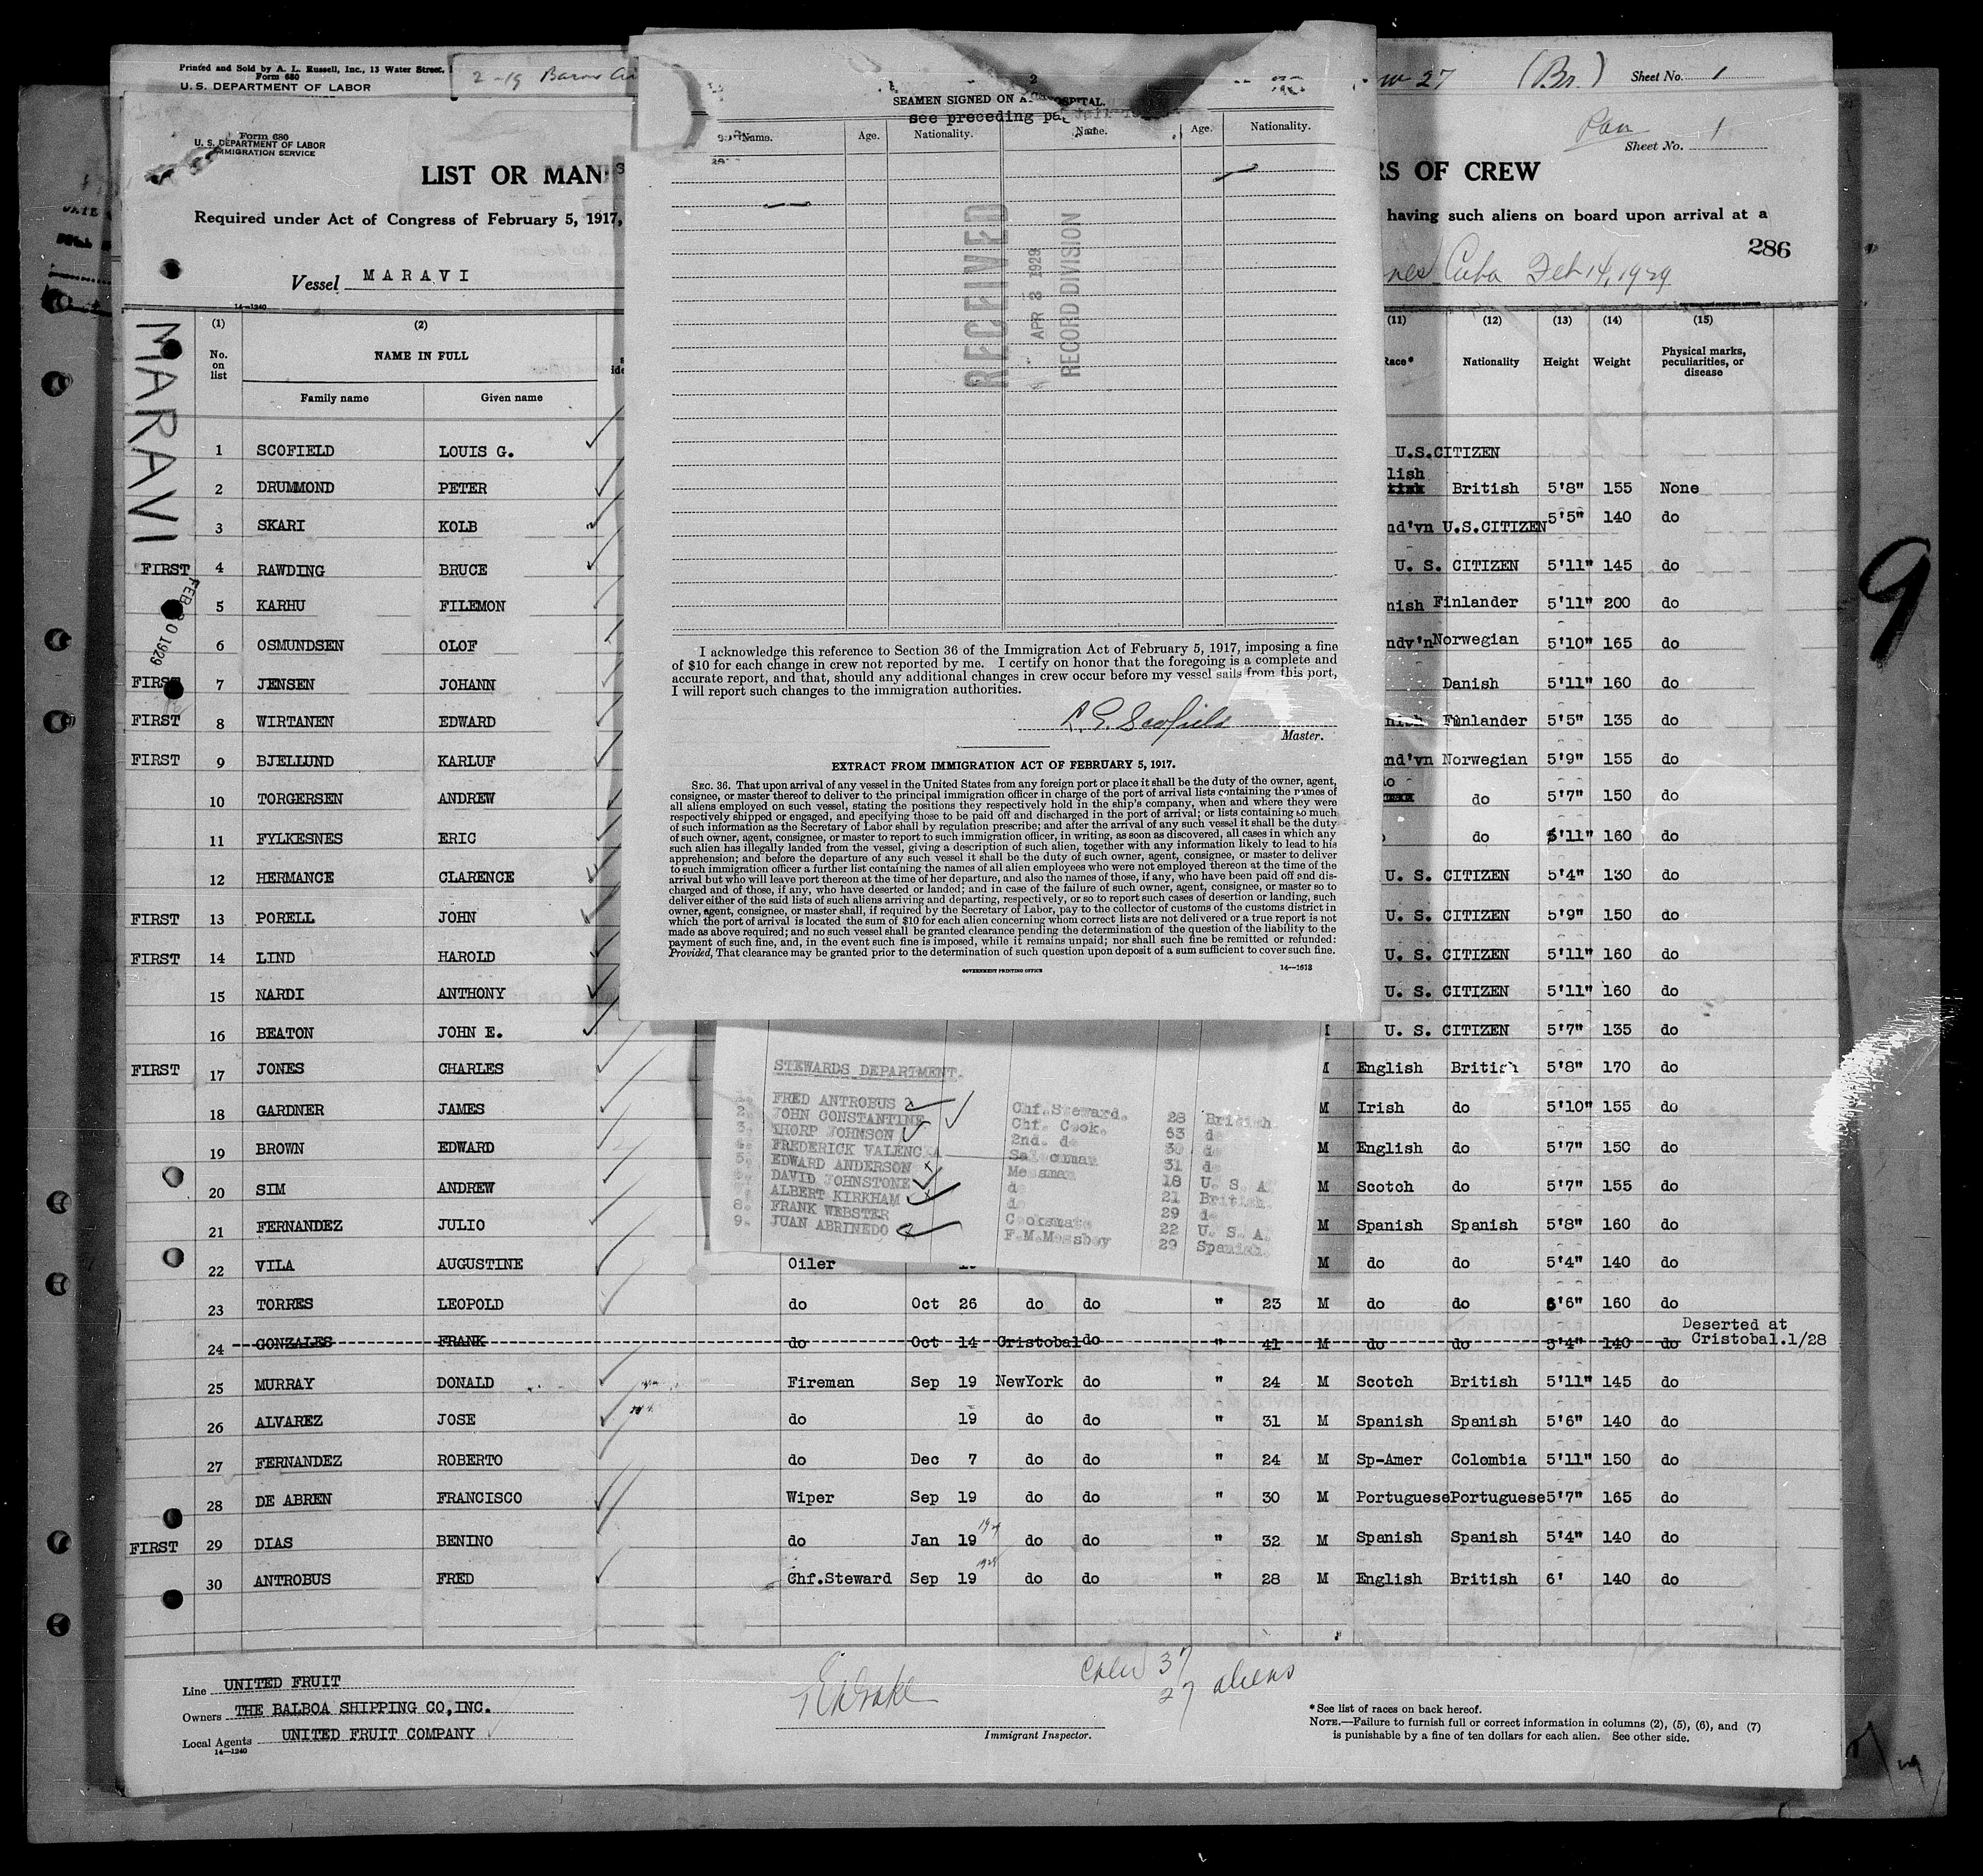 Printed and Sold by A. L. Russell, Inc., 13 Water Street,
Form 680
U. S. DEPARTMENT OF LABOR
2-19 Baron
27 (Br.) Sheet No. 1
Form 680
U. S. DEPARTMENT OF LABOR
IMMIGRATION SERVICE
Pan
Sheet No. 1
LIST OR MAN
RS OF CREW
Required under Act of Congress of February 5, 1917,
having such aliens on board upon arrival at a
286
Vessel MARAVI
Cuba Feb 14, 1929
14-1240
MARAVI
FEB 20 1929
9
(1) (2) (11) (12) (13) (14) (15)
No. on list NAME IN FULL Race* Nationality Height Weight Physical marks, peculiarities, or disease
Family name Given name
1 SCOFIELD LOUIS G. U.S.CITIZEN
2 DRUMMOND PETER lish British 5'8" 155 None
3 SKARI KOLB nd'vn U.S.CITIZEN 5'5" 140 do
FIRST 4 RAWDING BRUCE U. S. CITIZEN 5'11" 145 do
5 KARHU FILEMON nish Finlander 5'11" 200 do
6 OSMUNDSEN OLOF ndv'n Norwegian 5'10" 165 do
FIRST 7 JENSEN JOHANN Danish 5'11" 160 do
FIRST 8 WIRTANEN EDWARD nish Finlander 5'5" 135 do
FIRST 9 BJELLUND KARLUF nd'vn Norwegian 5'9" 155 do
10 TORGERSEN ANDREW do do 5'7" 150 do
11 FYLKESNES ERIC do 5'11" 160 do
12 HERMANCE CLARENCE U. S. CITIZEN 5'4" 130 do
FIRST 13 PORELL JOHN U. S. CITIZEN 5'9" 150 do
FIRST 14 LIND HAROLD U. S. CITIZEN 5'11" 160 do
15 NARDI ANTHONY U. S. CITIZEN 5'11" 160 do
16 BEATON JOHN E. U. S. CITIZEN 5'7" 135 do
FIRST 17 JONES CHARLES M English British 5'8" 170 do
18 GARDNER JAMES M Irish do 5'10" 155 do
19 BROWN EDWARD M English do 5'7" 150 do
20 SIM ANDREW M Scotch do 5'7" 155 do
21 FERNANDEZ JULIO M Spanish Spanish 5'8" 160 do
22 VILA AUGUSTINE Oiler M do do 5'4" 140 do
23 TORRES LEOPOLD do Oct 26 do do " 23 M do do 5'6" 160 do
24 GONZALES FRANK do Oct 14 Cristobal do " 41 M do do 5'4" 140 do Deserted at Cristobal.1/28
25 MURRAY DONALD Fireman Sep 19 NewYork do " 24 M Scotch British 5'11" 145 do
26 ALVAREZ JOSE do 19 do do " 31 M Spanish Spanish 5'6" 140 do
27 FERNANDEZ ROBERTO do Dec 7 do do " 24 M Sp-Amer Colombia 5'11" 150 do
28 DE ABREN FRANCISCO Wiper Sep 19 do do " 30 M Portuguese Portuguese 5'7" 165 do
FIRST 29 DIAS BENINO do Jan 19 1929 do do " 32 M Spanish Spanish 5'4" 140 do
30 ANTROBUS FRED Chf.Steward Sep 19 1928 do do " 28 M English British 6' 140 do
Line UNITED FRUIT
Owners THE BALBOA SHIPPING CO,INC.
Local Agents UNITED FRUIT COMPANY
14-1240
Immigrant Inspector.
37
27 aliens
*See list of races on back hereof.
NOTE.—Failure to furnish full or correct information in columns (2), (5), (6), and (7)
is punishable by a fine of ten dollars for each alien. See other side.
2
SEAMEN SIGNED ON
HOSPITAL.
see preceding
Name. Age. Nationality. Name. Age. Nationality.
RECEIVED
APR 3 1929
RECORD DIVISION
I acknowledge this reference to Section 36 of the Immigration Act of February 5, 1917, imposing a fine
of $10 for each change in crew not reported by me. I certify on honor that the foregoing is a complete and
accurate report, and that, should any additional changes in crew occur before my vessel sails from this port,
I will report such changes to the immigration authorities.
L. G. Scofield
Master.
EXTRACT FROM IMMIGRATION ACT OF FEBRUARY 5, 1917.
SEC. 36. That upon arrival of any vessel in the United States from any foreign port or place it shall be the duty of the owner, agent,
consignee, or master thereof to deliver to the principal immigration officer in charge of the port of arrival lists containing the names of
all aliens employed on such vessel, stating the positions they respectively hold in the ship's company, when and where they were
respectively shipped or engaged, and specifying those to be paid off and discharged in the port of arrival; or lists containing so much
of such information as the Secretary of Labor shall by regulation prescribe; and after the arrival of any such vessel it shall be the duty
of such owner, agent, consignee, or master to report to such immigration officer, in writing, as soon as discovered, all cases in which any
such alien has illegally landed from the vessel, giving a description of such alien, together with any information likely to lead to his
apprehension; and before the departure of any such vessel it shall be the duty of such owner, agent, consignee, or master to deliver
to such immigration officer a further list containing the names of all alien employees who were not employed thereon at the time of the
arrival but who will leave port thereon at the time of her departure, and also the names of those, if any, who have been paid off and dis-
charged and of those, if any, who have deserted or landed; and in case of the failure of such owner, agent, consignee, or master so to
deliver either of the said lists of such aliens arriving and departing, respectively, or so to report such cases of desertion or landing, such
owner, agent, consignee, or master shall, if required by the Secretary of Labor, pay to the collector of customs of the customs district in
which the port of arrival is located the sum of $10 for each alien concerning whom correct lists are not delivered or a true report is not
made as above required; and no such vessel shall be granted clearance pending the determination of the question of the liability to the
payment of such fine, and, in the event such fine is imposed, while it remains unpaid; nor shall such fine be remitted or refunded:
Provided, That clearance may be granted prior to the determination of such question upon deposit of a sum sufficient to cover such fine.
GOVERNMENT PRINTING OFFICE
14-1618
STEWARDS DEPARTMENT.
1. FRED ANTROBUS Chf.Steward. 28 British
2. JOHN CONSTANTINE Chf. Cook. 53 do
3. THORP JOHNSON 2nd. do 30 do
4. FREDERICK VALENCIA 31 do
5. EDWARD ANDERSON Messman 18 U. S. A.
DAVID JOHNSTONE do 21 British.
ALBERT KIRKHAM do 29 do
8. FRANK WEBSTER Cooksmate 22 U. S. A.
9. JUAN ABRINEDO F.M.Messboy 29 Spanish.